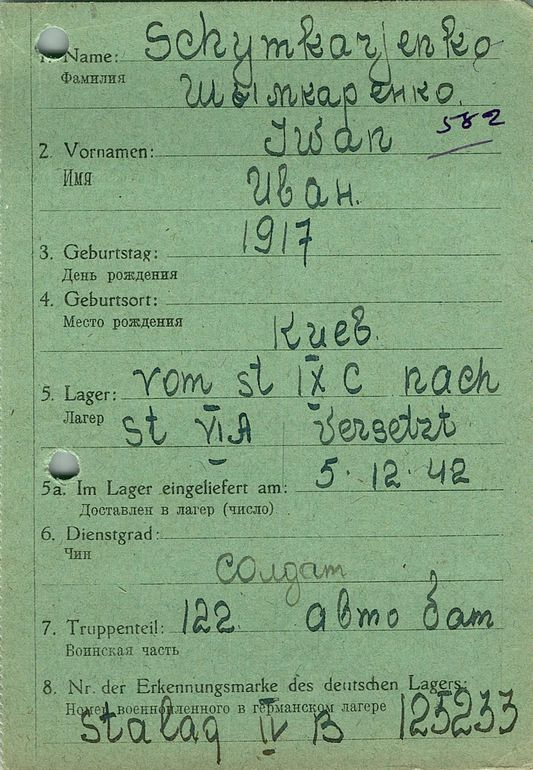 1. Name: Schymkarjenko
Фамилия
Шымкаренко.
582
2. Vornamen: Iwan
Имя
Иван.
3. Geburtstag: 1917
День рождения
4. Geburtsort:
Место рождения
Киев.
5. Lager: vom st IX C nach
Лагер st VI A versetzt
5a. Im Lager eingeliefert am: 5.12.42
Доставлен в лагер (число)
6. Dienstgrad:
Чин
солдат
7. Truppenteil: 122 авто бат
Воинская часть
8. Nr. der Erkennungsmarke des deutschen Lagers:
Номер военнопленного в германском лагере
stalag IV B 125233